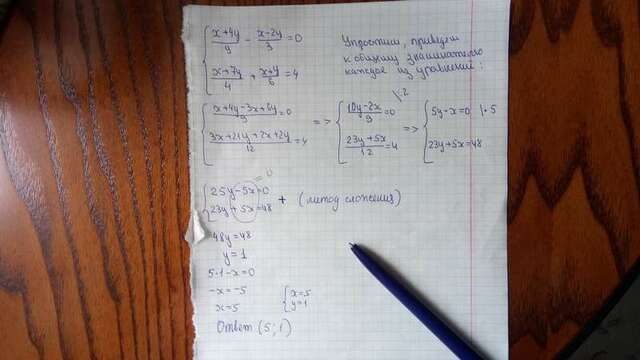 { (x+4y)/9 - (x-2y)/3 = 0
(x+7y)/4 + (x+y)/6 = 4
Упростим, приведём
к общему знаменателю
каждое из уравнений:
{ (x+4y-3x+6y)/9 = 0
(3x+21y+2x+2y)/12 = 4
=> { (10y-2x)/9 = 0 \:2
(23y+5x)/12 = 4
=> { 5y-x=0 |·5
23y+5x=48
{ 25y-5x=0
23y+5x=48
=0
+ (метод сложения)
48y=48
y=1
5·1-x=0
-x=-5
x=5
{ x=5
y=1
Ответ (5;1)